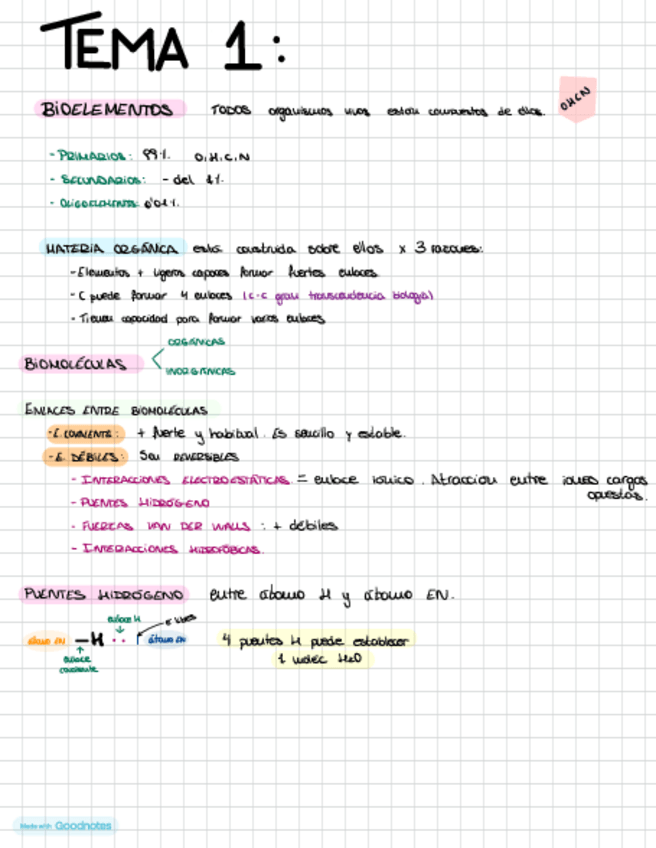 TEMA 1:
BIOELEMENTOS TODOS organismos vivos están compuestos de ellos. O.H.C.N
- PRIMARIOS: 99%. O.H.C.N
- SECUNDARIOS: - del 1%.
- OLIGOELEMENTS: 0'01%.
MATERIA ORGÁNICA está construida sobre ellos x 3 razones:
- Elementos + ligeros capaces formar fuertes enlaces
- C puede formar 4 enlaces (c-c gran transcendencia biología)
- Tienen capacidad para formar varios enlaces
ORGÁNICAS
BIOMOLÉCULAS
INORGÁNICAS
ENLACES ENTRE BIOMOLÉCULAS
- E. COVALENTE: + fuerte y habitual. Es sencillo y estable.
- E. DÉBILES: Son REVERSIBLES
- INTERACCIONES ELECTROESTÁTICAS = enlace iónico. Atracción entre iones cargas
opuestas.
- PUENTES HIDRÓGENO
- FUERZAS VAN DER WALLS : + débiles
- INTERACCIONES HIDROFÓBICAS.
PUENTES HIDRÓGENO entre átomo H y átomo EN.
enlace H e- libres
átomo EN — H ·· átomo EN 4 puentes H puede establecer
enlace 1 molec H2O
covalente
Made with Goodnotes